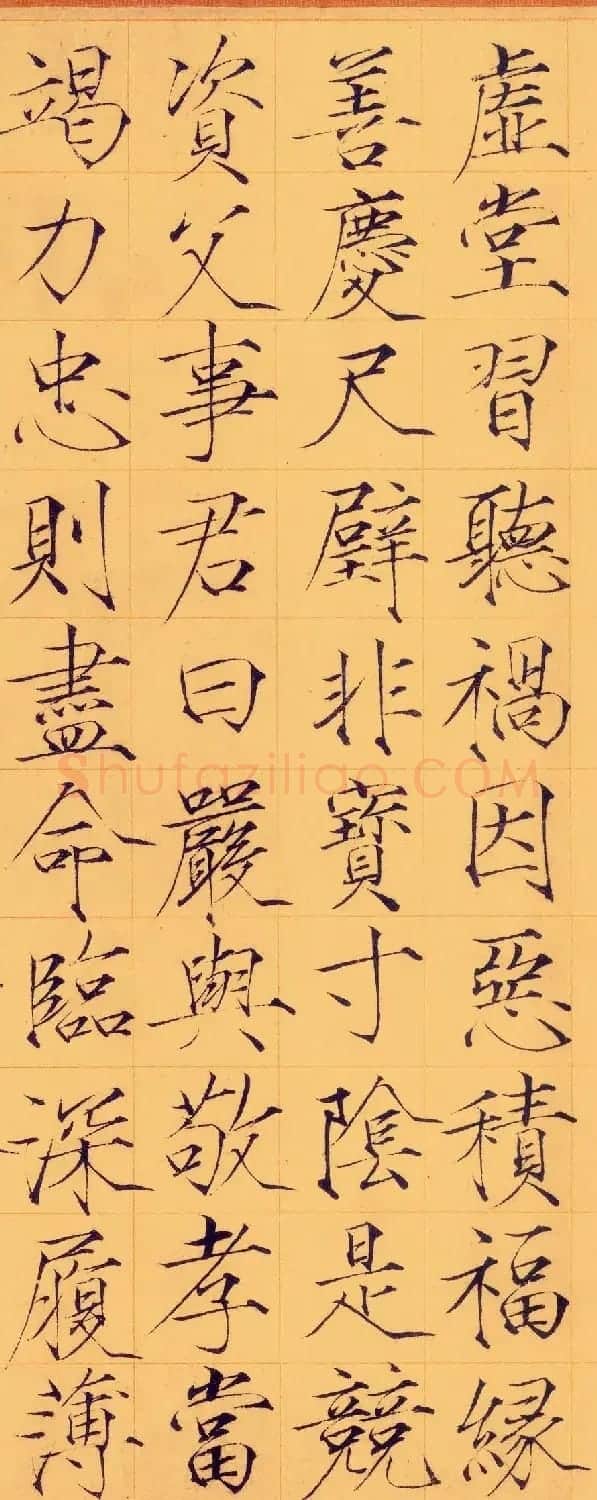 虛堂習聽禍因惡積福緣
善慶尺璧非寶寸陰是競
資父事君曰嚴與敬孝當
竭力忠則盡命臨深履薄
Shufaziliao.COM